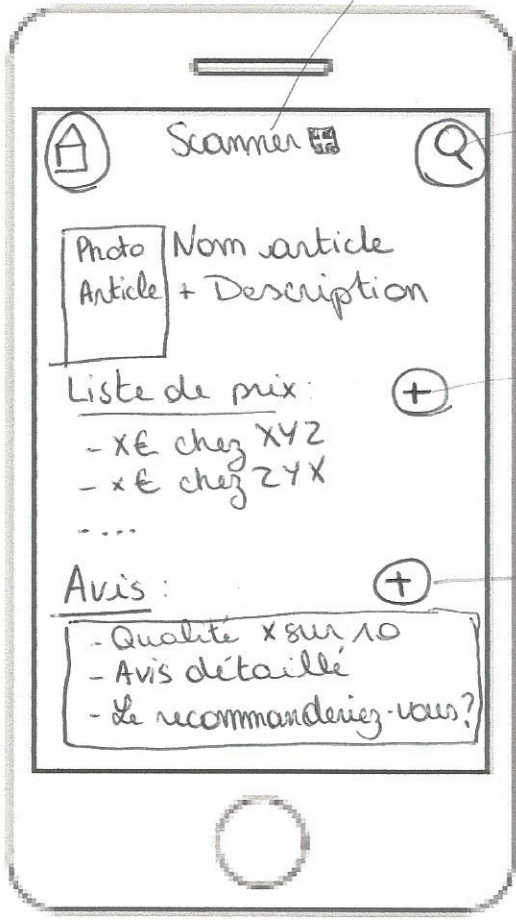 Scanner
Photo
Article
Nom article
+ Description
Liste de prix :
+
- X€ chez XYZ
- x€ chez ZYX
- ....
Avis :
+
- Qualité x sur 10
- Avis détaillé
- Le recommanderiez-vous ?